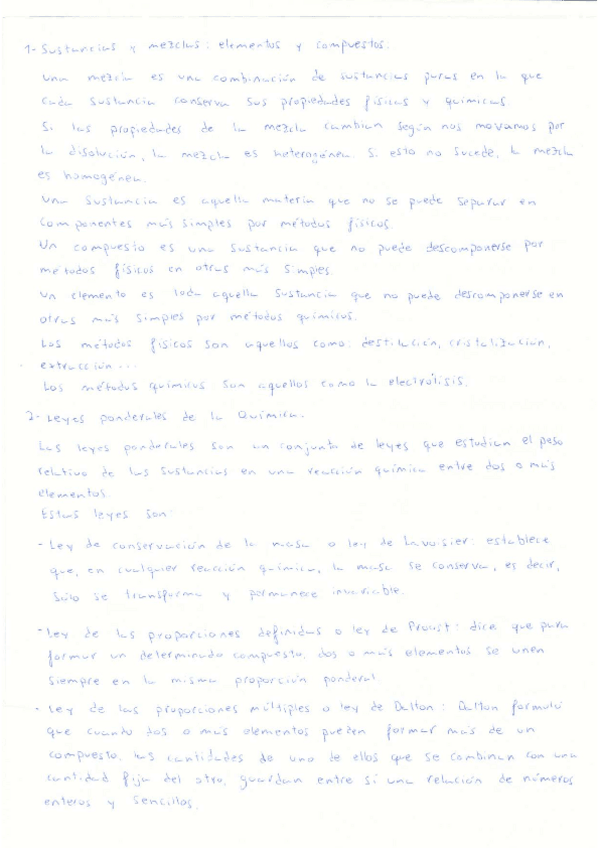 1- Sustancias y mezclas: elementos y compuestos.
Una mezcla es una combinación de sustancias puras en la que
cada sustancia conserva sus propiedades físicas y químicas.
Si las propiedades de la mezcla cambian según nos movamos por
la disolución, la mezcla es heterogénea. Si esto no sucede, la mezcla
es homogénea.
Una sustancia es aquella materia que no se puede separar en
componentes más simples por métodos físicos.
Un compuesto es una sustancia que no puede descomponerse por
métodos físicos en otras más simples.
Un elemento es toda aquella sustancia que no puede descomponerse en
otras más simples por métodos químicos.
Los métodos físicos son aquellos como: destilación, cristalización,
extracción...
Los métodos químicos son aquellos como la electrólisis.
2- Leyes ponderales de la Química.
Las leyes ponderales son un conjunto de leyes que estudian el peso
relativo de las sustancias en una reacción química entre dos o más
elementos.
Estas leyes son:
- Ley de conservación de la masa o ley de Lavoisier: establece
que, en cualquier reacción química, la masa se conserva, es decir,
sólo se transforma y permanece invariable.
- Ley de las proporciones definidas o ley de Proust: dice que para
formar un determinado compuesto, dos o más elementos se unen
siempre en la misma proporción ponderal
- Ley de las proporciones múltiples o ley de Dalton: Dalton formuló
que cuando dos o más elementos pueden formar más de un
compuesto, las cantidades de uno de ellos que se combinan con una
cantidad fija del otro, guardan entre sí una relación de números
enteros y sencillos.